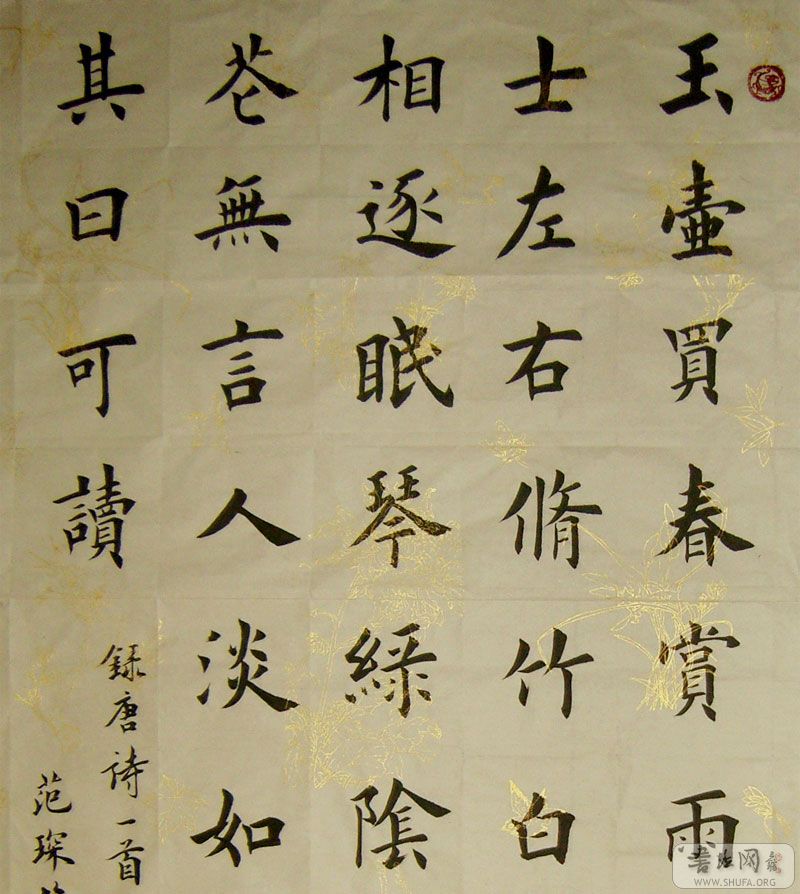 玉壷買春賞雨
士左右脩竹白
相逐眠琴綠陰
花無言人淡如
其曰可讀
録唐诗一首
范琛
书法网
WWW.SHUFA.ORG